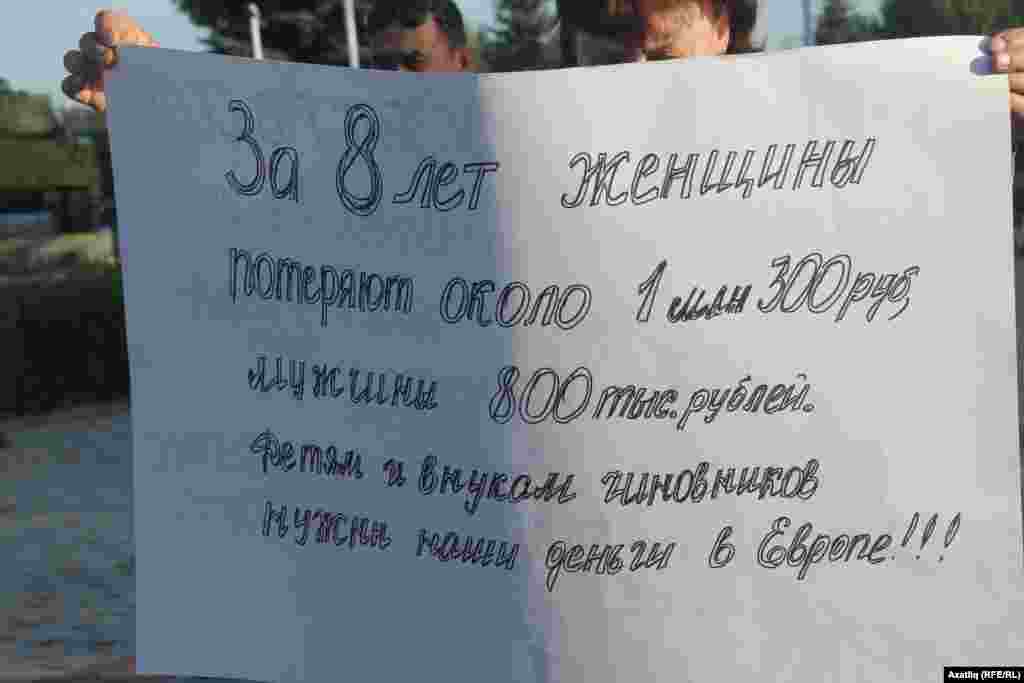 За 8 лет женщины
потеряют около 1 млн 300 руб,
мужчины 800 тыс. рублей.
Детям и внукам чиновников
нужны наши деньги в Европе!!!
Azatliq (RFE/RL)